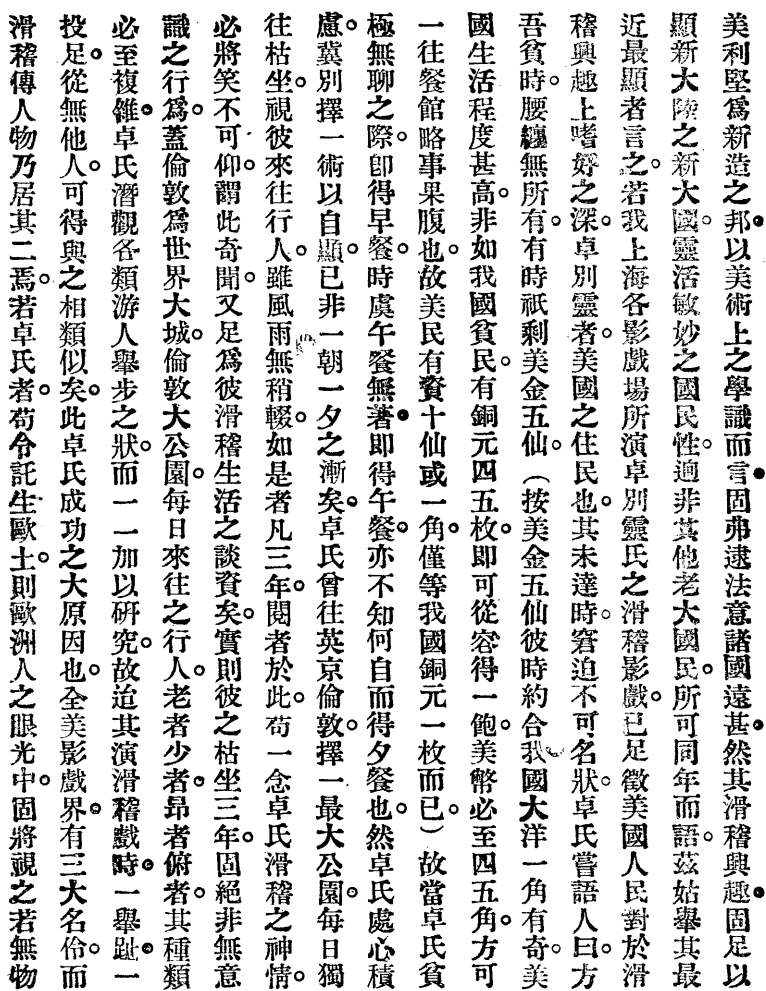 美利堅爲新造之邦。以美術上之學識而言。固弗逮法意諸國遠甚。然其滑稽興趣。固足以
顯新大陸之新大國。靈活敏妙之國民性。適非其他老大國民。所可同年而語。茲姑舉其最
近最顯者言之。若我上海各影戲場所演卓別靈氏之滑稽影戲。已足徵美國人民對於滑
稽興趣上嗜好之深。卓別靈者。美國之住民也。其未達時。窘迫不可名狀。卓氏嘗語人曰。方
吾貧時。腰纏無所有。有時祇剩美金五仙。(按美金五仙彼時約合我國大洋一角有奇。美
國生活程度甚高。非如我國貧民。有銅元四五枚。即可從容得一飽。美幣必至四五角。方可
一往餐館略事果腹也。故美民有資十仙或一角。僅等我國銅元一枚而已。)故當卓氏貧
極無聊之際。卽得早餐。時虞午餐無著。即得午餐。亦不知何自而得夕餐也。然卓氏處心積
慮。冀別擇一術以自顯。已非一朝一夕之漸矣。卓氏曾往英京倫敦。擇一最大公園。每日獨
往枯坐。視彼來往行人。雖風雨無稍輟。如是者凡三年。閱者於此。苟一念卓氏滑稽之神情。
必將笑不可仰。謂此奇聞。又足爲彼滑稽生活之談資矣。實則彼之枯坐三年。固絕非無意
識之行爲。蓋倫敦爲世界大城。倫敦大公園。每日來往之行人。老者少者。昂者俯者。其種類
必至複雜。卓氏潛觀各類游人舉步之狀。而一一加以硏究。故迨其演滑稽戲時。一舉趾。一
投足。從無他人。可得與之相類似矣。此卓氏成功之大原因也。全美影戲界。有三大名伶。而
滑稽傳人物乃居其二焉。若卓氏者。苟令託生歐土。則歐洲人之眼光中。固將視之若無物